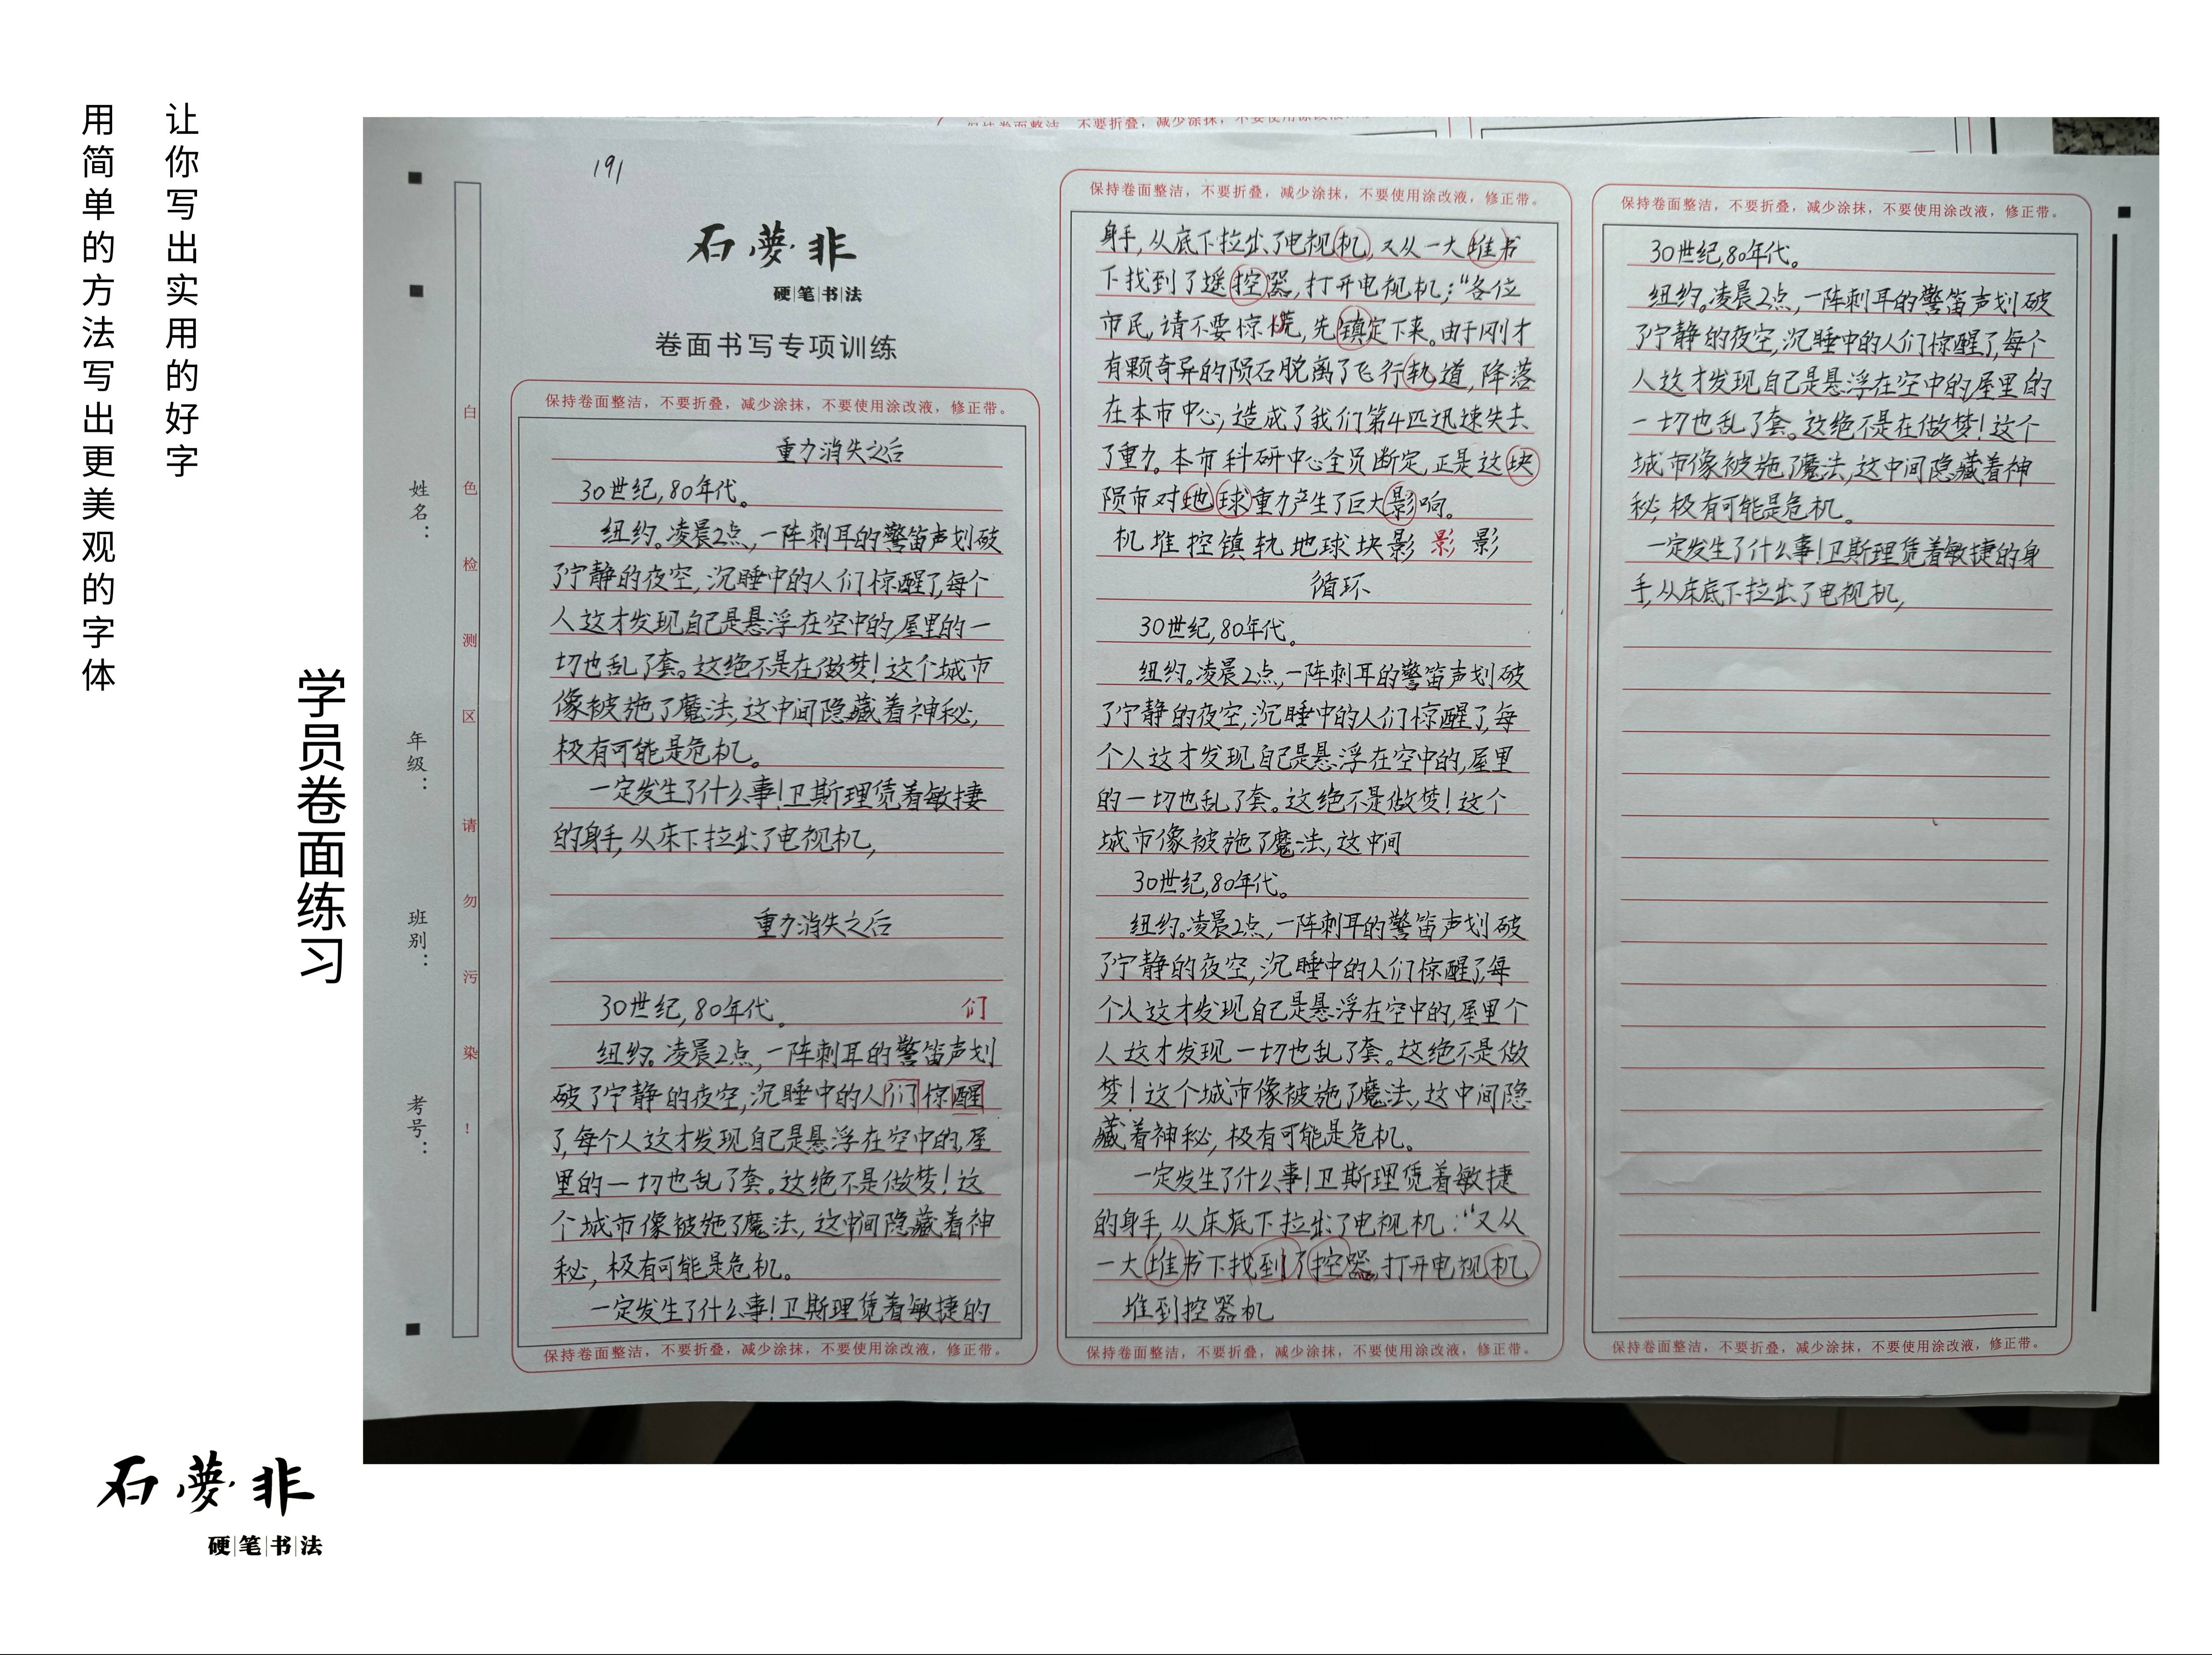 让你写出实用的好字
用简单的方法写出更美观的字体
学员卷面练习
石夢非
硬|笔|书|法
191
石夢非
硬|笔|书|法
卷面书写专项训练
姓名：
年级：
班别：
考号：
白色检测区 请勿污染！
保持卷面整洁，不要折叠，减少涂抹，不要使用涂改液，修正带。
重力消失之后
30世纪,80年代。
纽约。凌晨2点,一阵刺耳的警笛声划破
了宁静的夜空,沉睡中的人们惊醒了,每个
人这才发现自己是悬浮在空中的,屋里的一
切也乱了套。这绝不是在做梦!这个城市
像被施了魔法,这中间隐藏着神秘,
极有可能是危机。
一定发生了什么事!卫斯理凭着敏捷
的身手,从床下拉出了电视机,
重力消失之后
30世纪,80年代。 们
纽约。凌晨2点,一阵刺耳的警笛声划
破了宁静的夜空,沉睡中的人们惊醒
了,每个人这才发现自己是悬浮在空中的,屋
里的一切也乱了套。这绝不是做梦!这
个城市像被施了魔法,这中间隐藏着神
秘,极有可能是危机。
一定发生了什么事!卫斯理凭着敏捷的
保持卷面整洁，不要折叠，减少涂抹，不要使用涂改液，修正带。
保持卷面整洁，不要折叠，减少涂抹，不要使用涂改液，修正带。
身手,从底下拉出了电视机,又从一大堆书
下找到了遥控器,打开电视机;“各位
市民,请不要惊慌,先镇定下来。由于刚才
有颗奇异的陨石脱离了飞行轨道,降落
在本市中心,造成了我们第4匹迅速失去
了重力。本市科研中心全员断定,正是这块
陨市对地球重力产生了巨大影响。
机堆控镇轨地球块影 影 影
循环
30世纪,80年代。
纽约。凌晨2点,一阵刺耳的警笛声划破
了宁静的夜空,沉睡中的人们惊醒了,每
个人这才发现自己是悬浮在空中的,屋里
的一切也乱了套。这绝不是做梦!这个
城市像被施了魔法,这中间
30世纪,80年代。
纽约。凌晨2点,一阵刺耳的警笛声划破
了宁静的夜空,沉睡中的人们惊醒了,每
个人这才发现自己是悬浮在空中的,屋里个
人这才发现一切也乱了套。这绝不是做
梦!这个城市像被施了魔法,这中间隐
藏着神秘,极有可能是危机。
一定发生了什么事!卫斯理凭着敏捷
的身手,从床底下拉出了电视机:“又从
一大堆书下找到了控器,打开电视机
堆到控器机
保持卷面整洁，不要折叠，减少涂抹，不要使用涂改液，修正带。
保持卷面整洁，不要折叠，减少涂抹，不要使用涂改液，修正带。
30世纪,80年代。
纽约。凌晨2点,一阵刺耳的警笛声划破
了宁静的夜空,沉睡中的人们惊醒了,每个
人这才发现自己是悬浮在空中的,屋里的
一切也乱了套。这绝不是在做梦!这个
城市像被施了魔法,这中间隐藏着神
秘,极有可能是危机。
一定发生了什么事!卫斯理凭着敏捷的身
手,从床底下拉出了电视机,
保持卷面整洁，不要折叠，减少涂抹，不要使用涂改液，修正带。